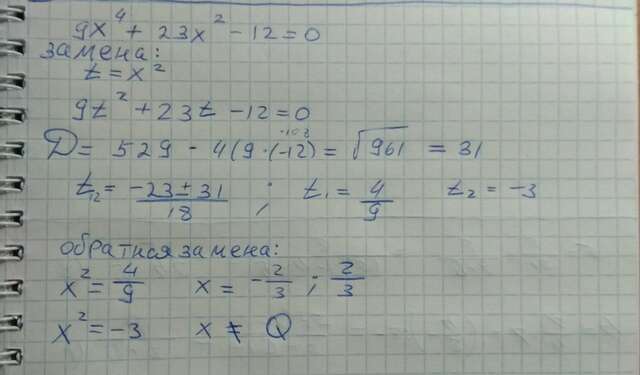 9x⁴ + 23x² - 12 = 0
замена:
t = x²
9t² + 23t - 12 = 0
D = 529 - 4(9·(-12) = √961 = 31
-108
t₁₂ = -23 ± 31 / 18 ; t₁ = 4/9 t₂ = -3
обратная замена:
x² = 4/9 x = -2/3 ; 2/3
x² = -3 x ≠ Q